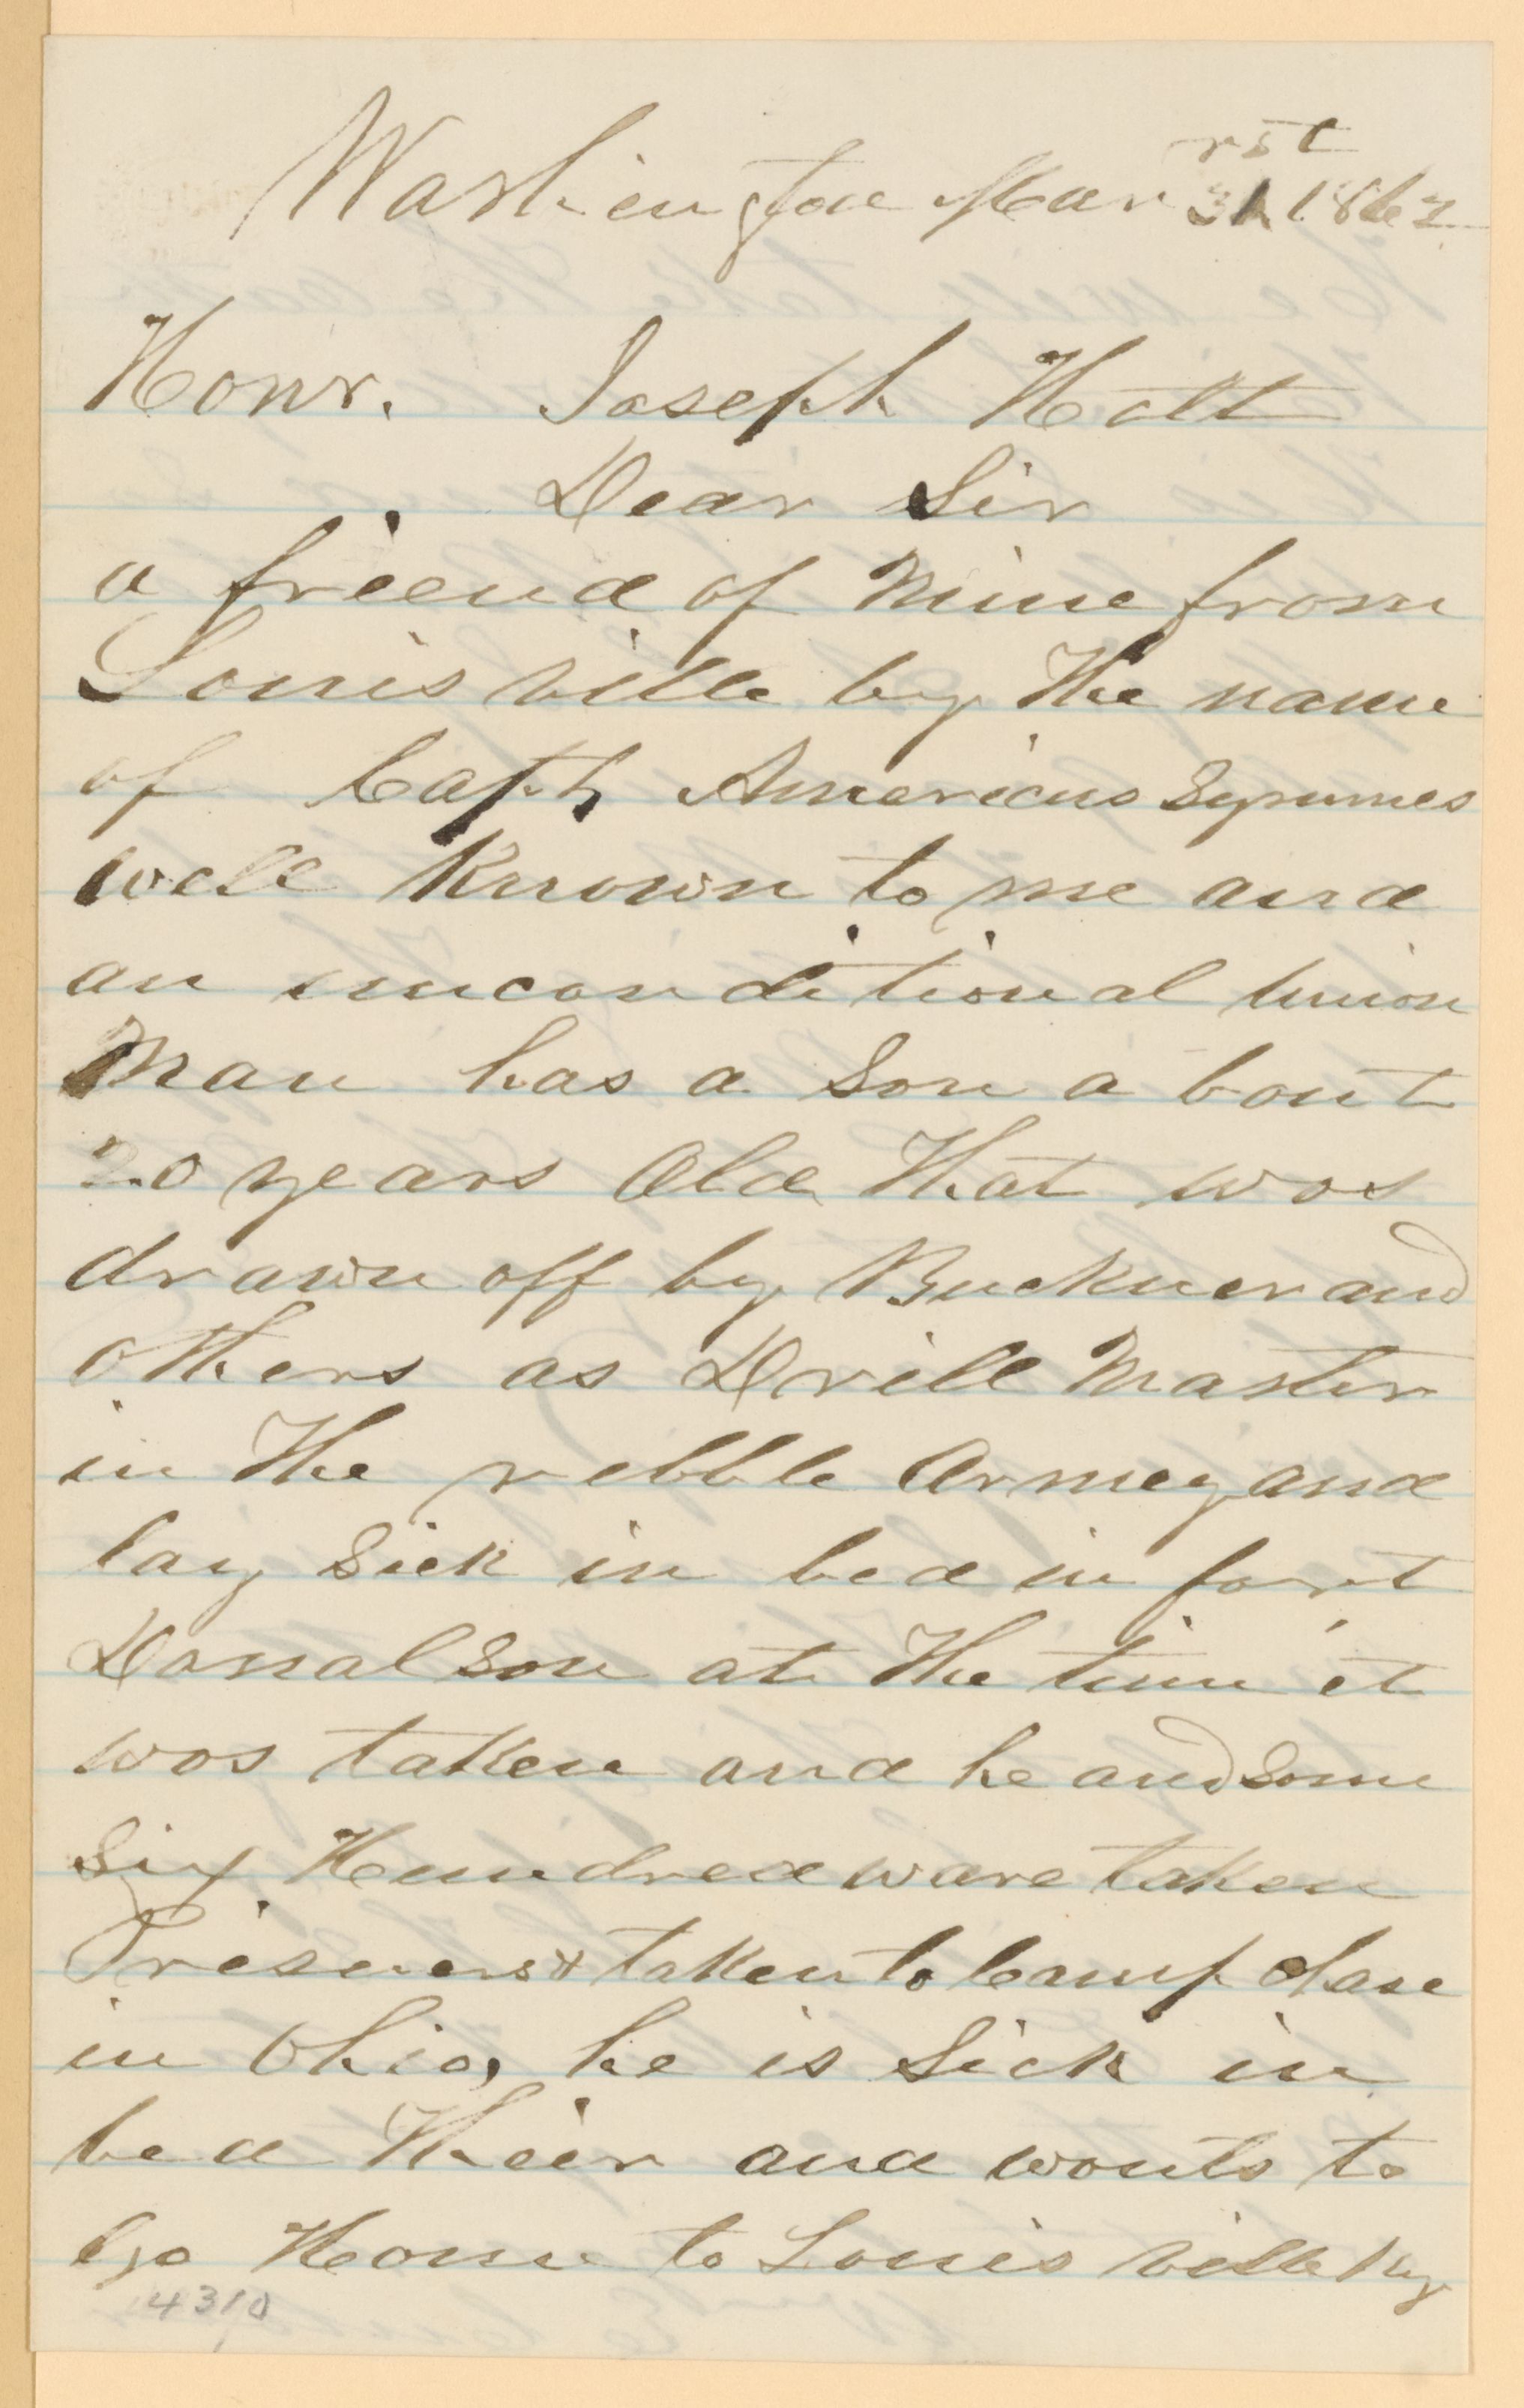 Washington Mar 31rst 1862
Honr. Joseph Holt
Dear Sir
a friend of Mine from
Louis ville by the name
of Capt Americus Symmes
well Known to me and
an unconditional Union
Man has a Son a bout
20 years Old That was
drawn off by Buckner and
others as Drill Master
in The rebble Armey and
lay Sick in bed in fort
Donalson at The time it
was taken and he and Some
Six Hundred ware taken
Prisners & taken to Camp Chase
in Ohio, he is Sick in
bed Their and wonts to
go Home to Louis ville Ky
4310